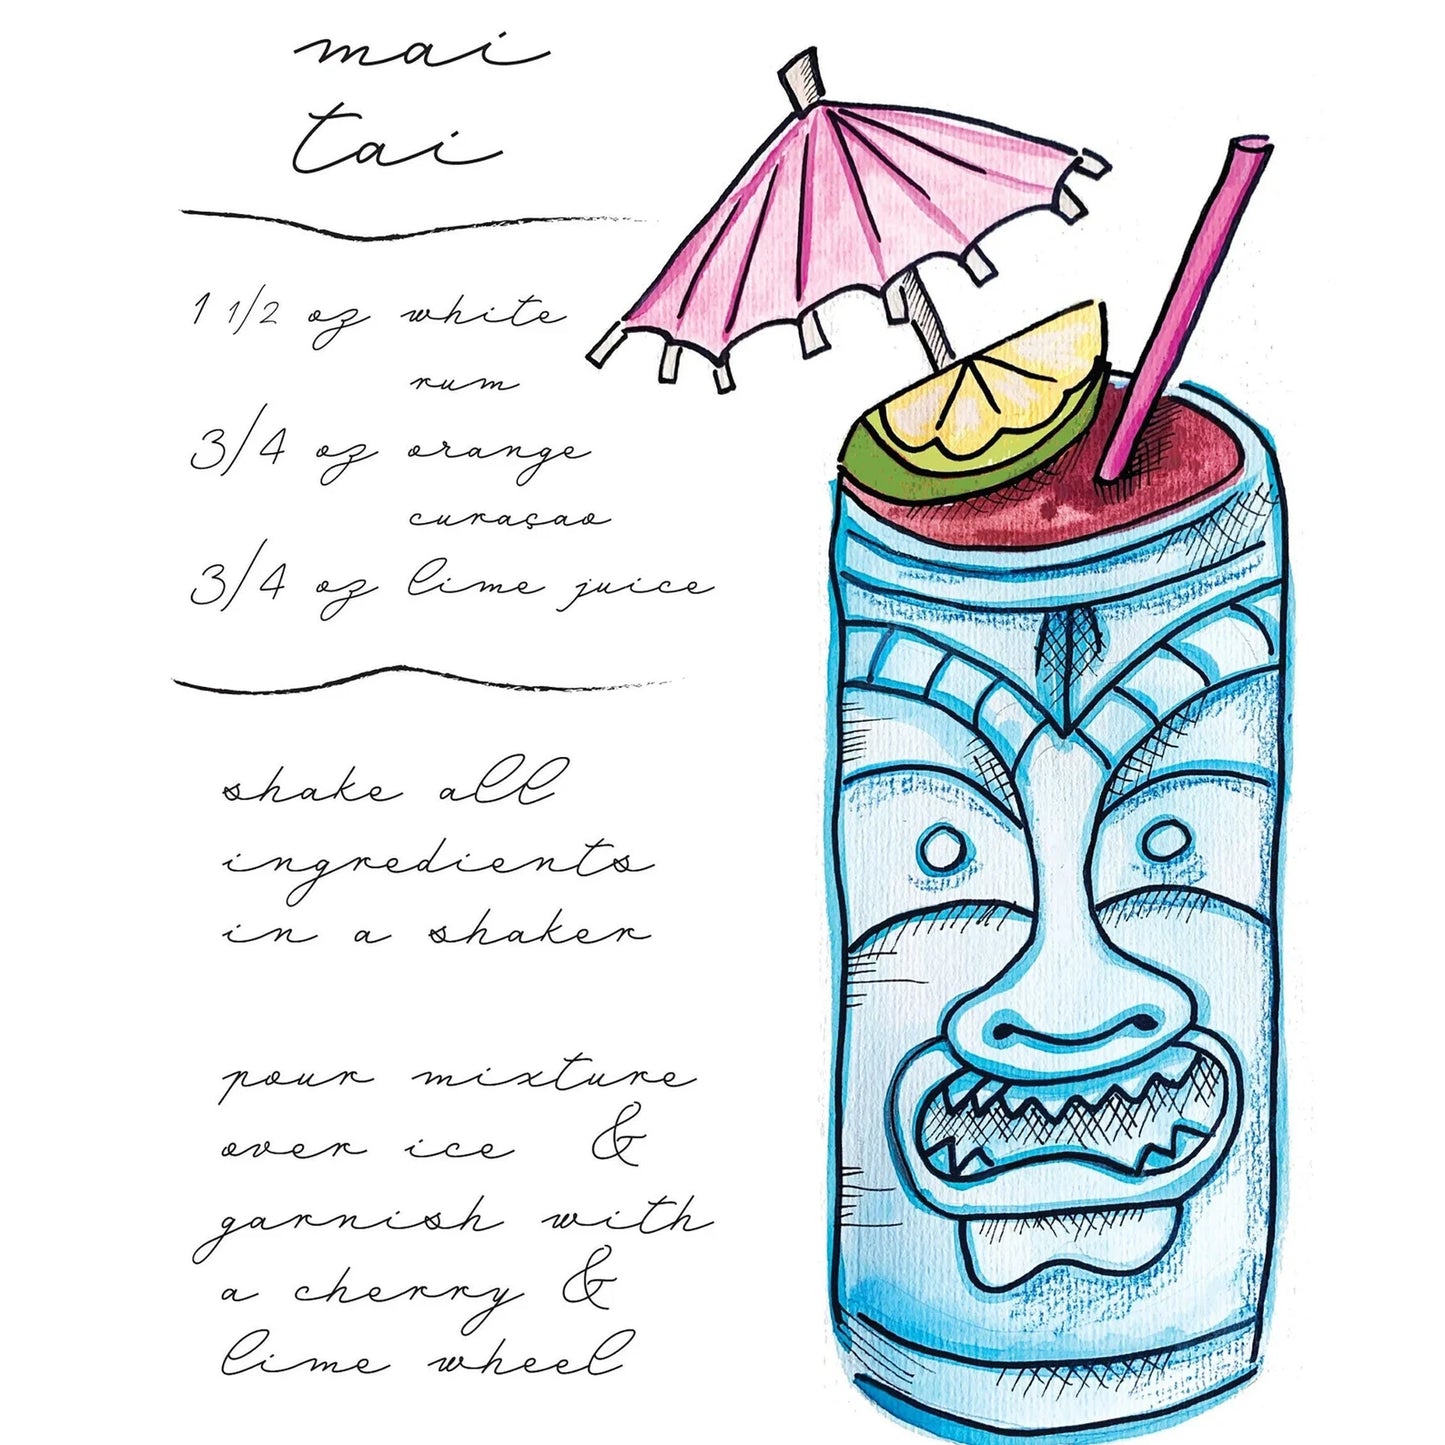 mai
tai
1 1/2 oz white
rum
3/4 oz orange
curaçao
3/4 oz lime juice
shake all
ingredients
in a shaker
pour mixture
over ice &
garnish with
a cherry &
lime wheel